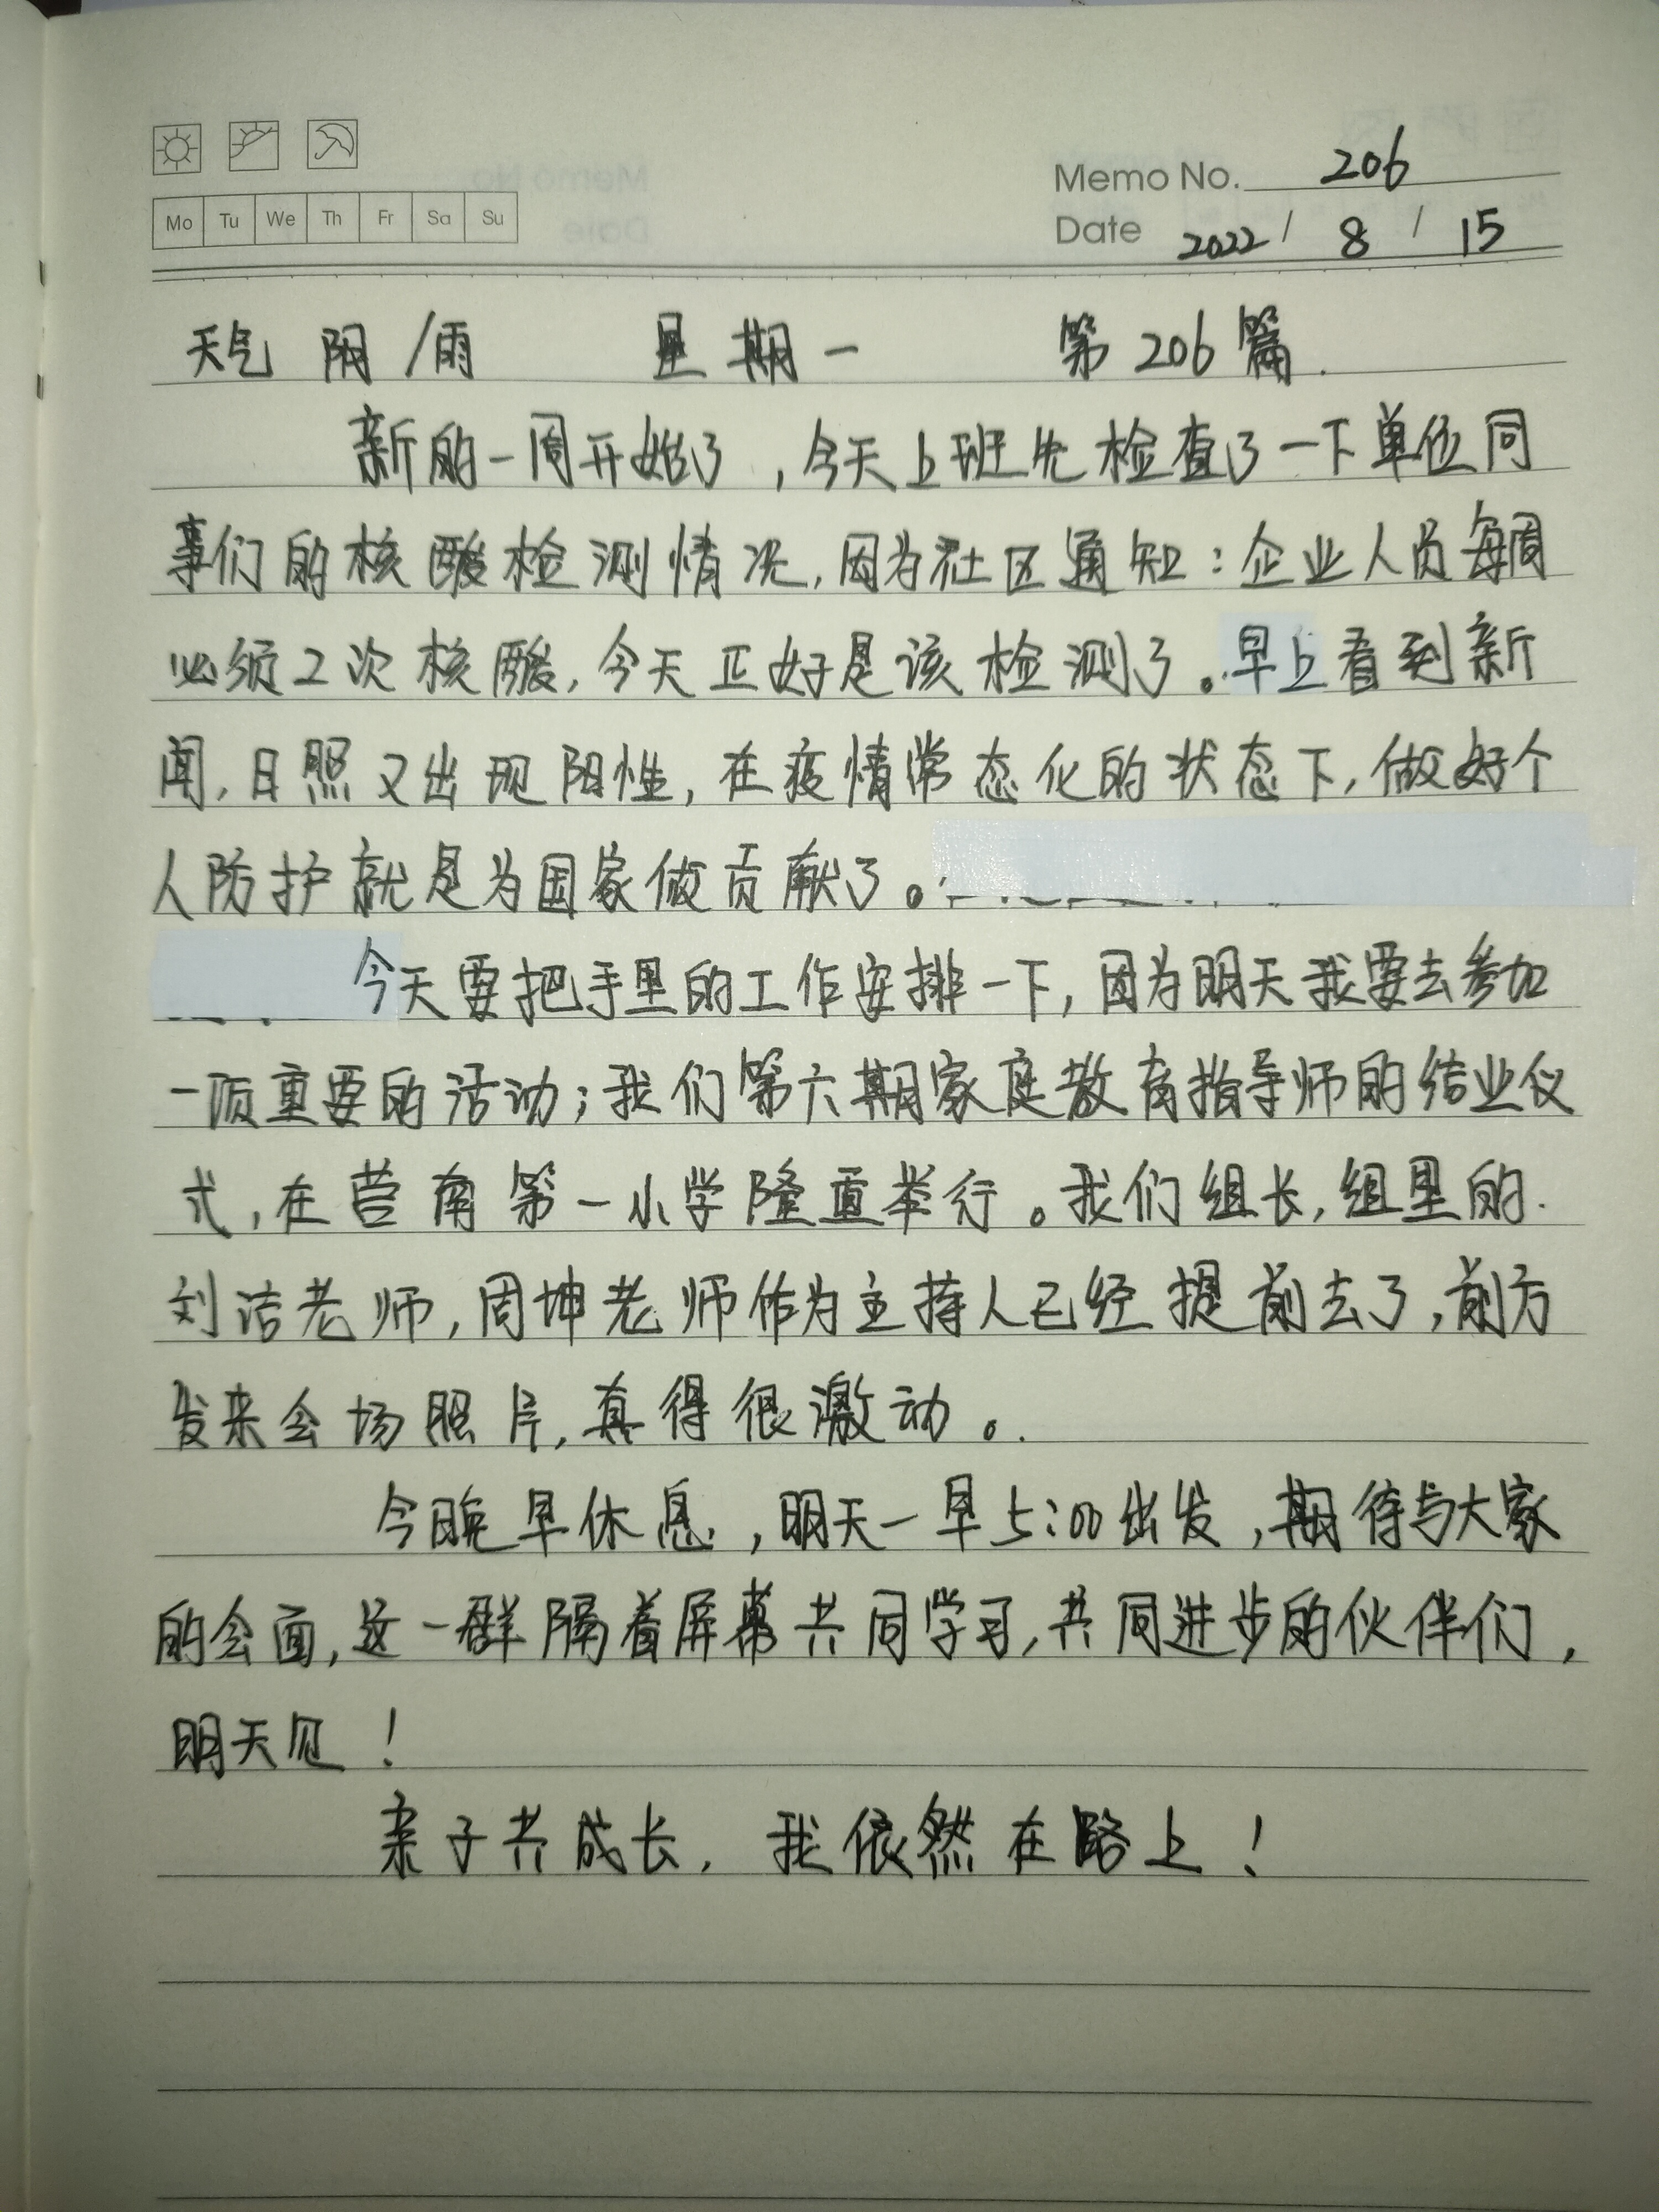 Memo No. 206
Mo Tu We Th Fr Sa Su
Date 2022 / 8 / 15
天气 阴/雨 星期一 第206篇.
新的一周开始了,今天上班先检查了一下单位同
事们的核酸检测情况,因为社区通知:企业人员每周
必须2次核酸,今天正好是该检测了。早上看到新
闻,日照又出现阳性,在疫情常态化的状态下,做好个
人防护就是为国家做贡献了。
今天要把手里的工作安排一下,因为明天我要去参加
一项重要的活动;我们第六期家庭教育指导师的结业仪
式,在莒南第一小学隆重举行。我们组长,组里的.
刘洁老师,周坤老师作为主持人已经提前去了,前方
发来会场照片,真得很激动。.
今晚早休息,明天一早5:00出发,期待与大家
的会面,这一群隔着屏幕共同学习,共同进步的伙伴们,
明天见!
亲子共成长,我依然在路上!